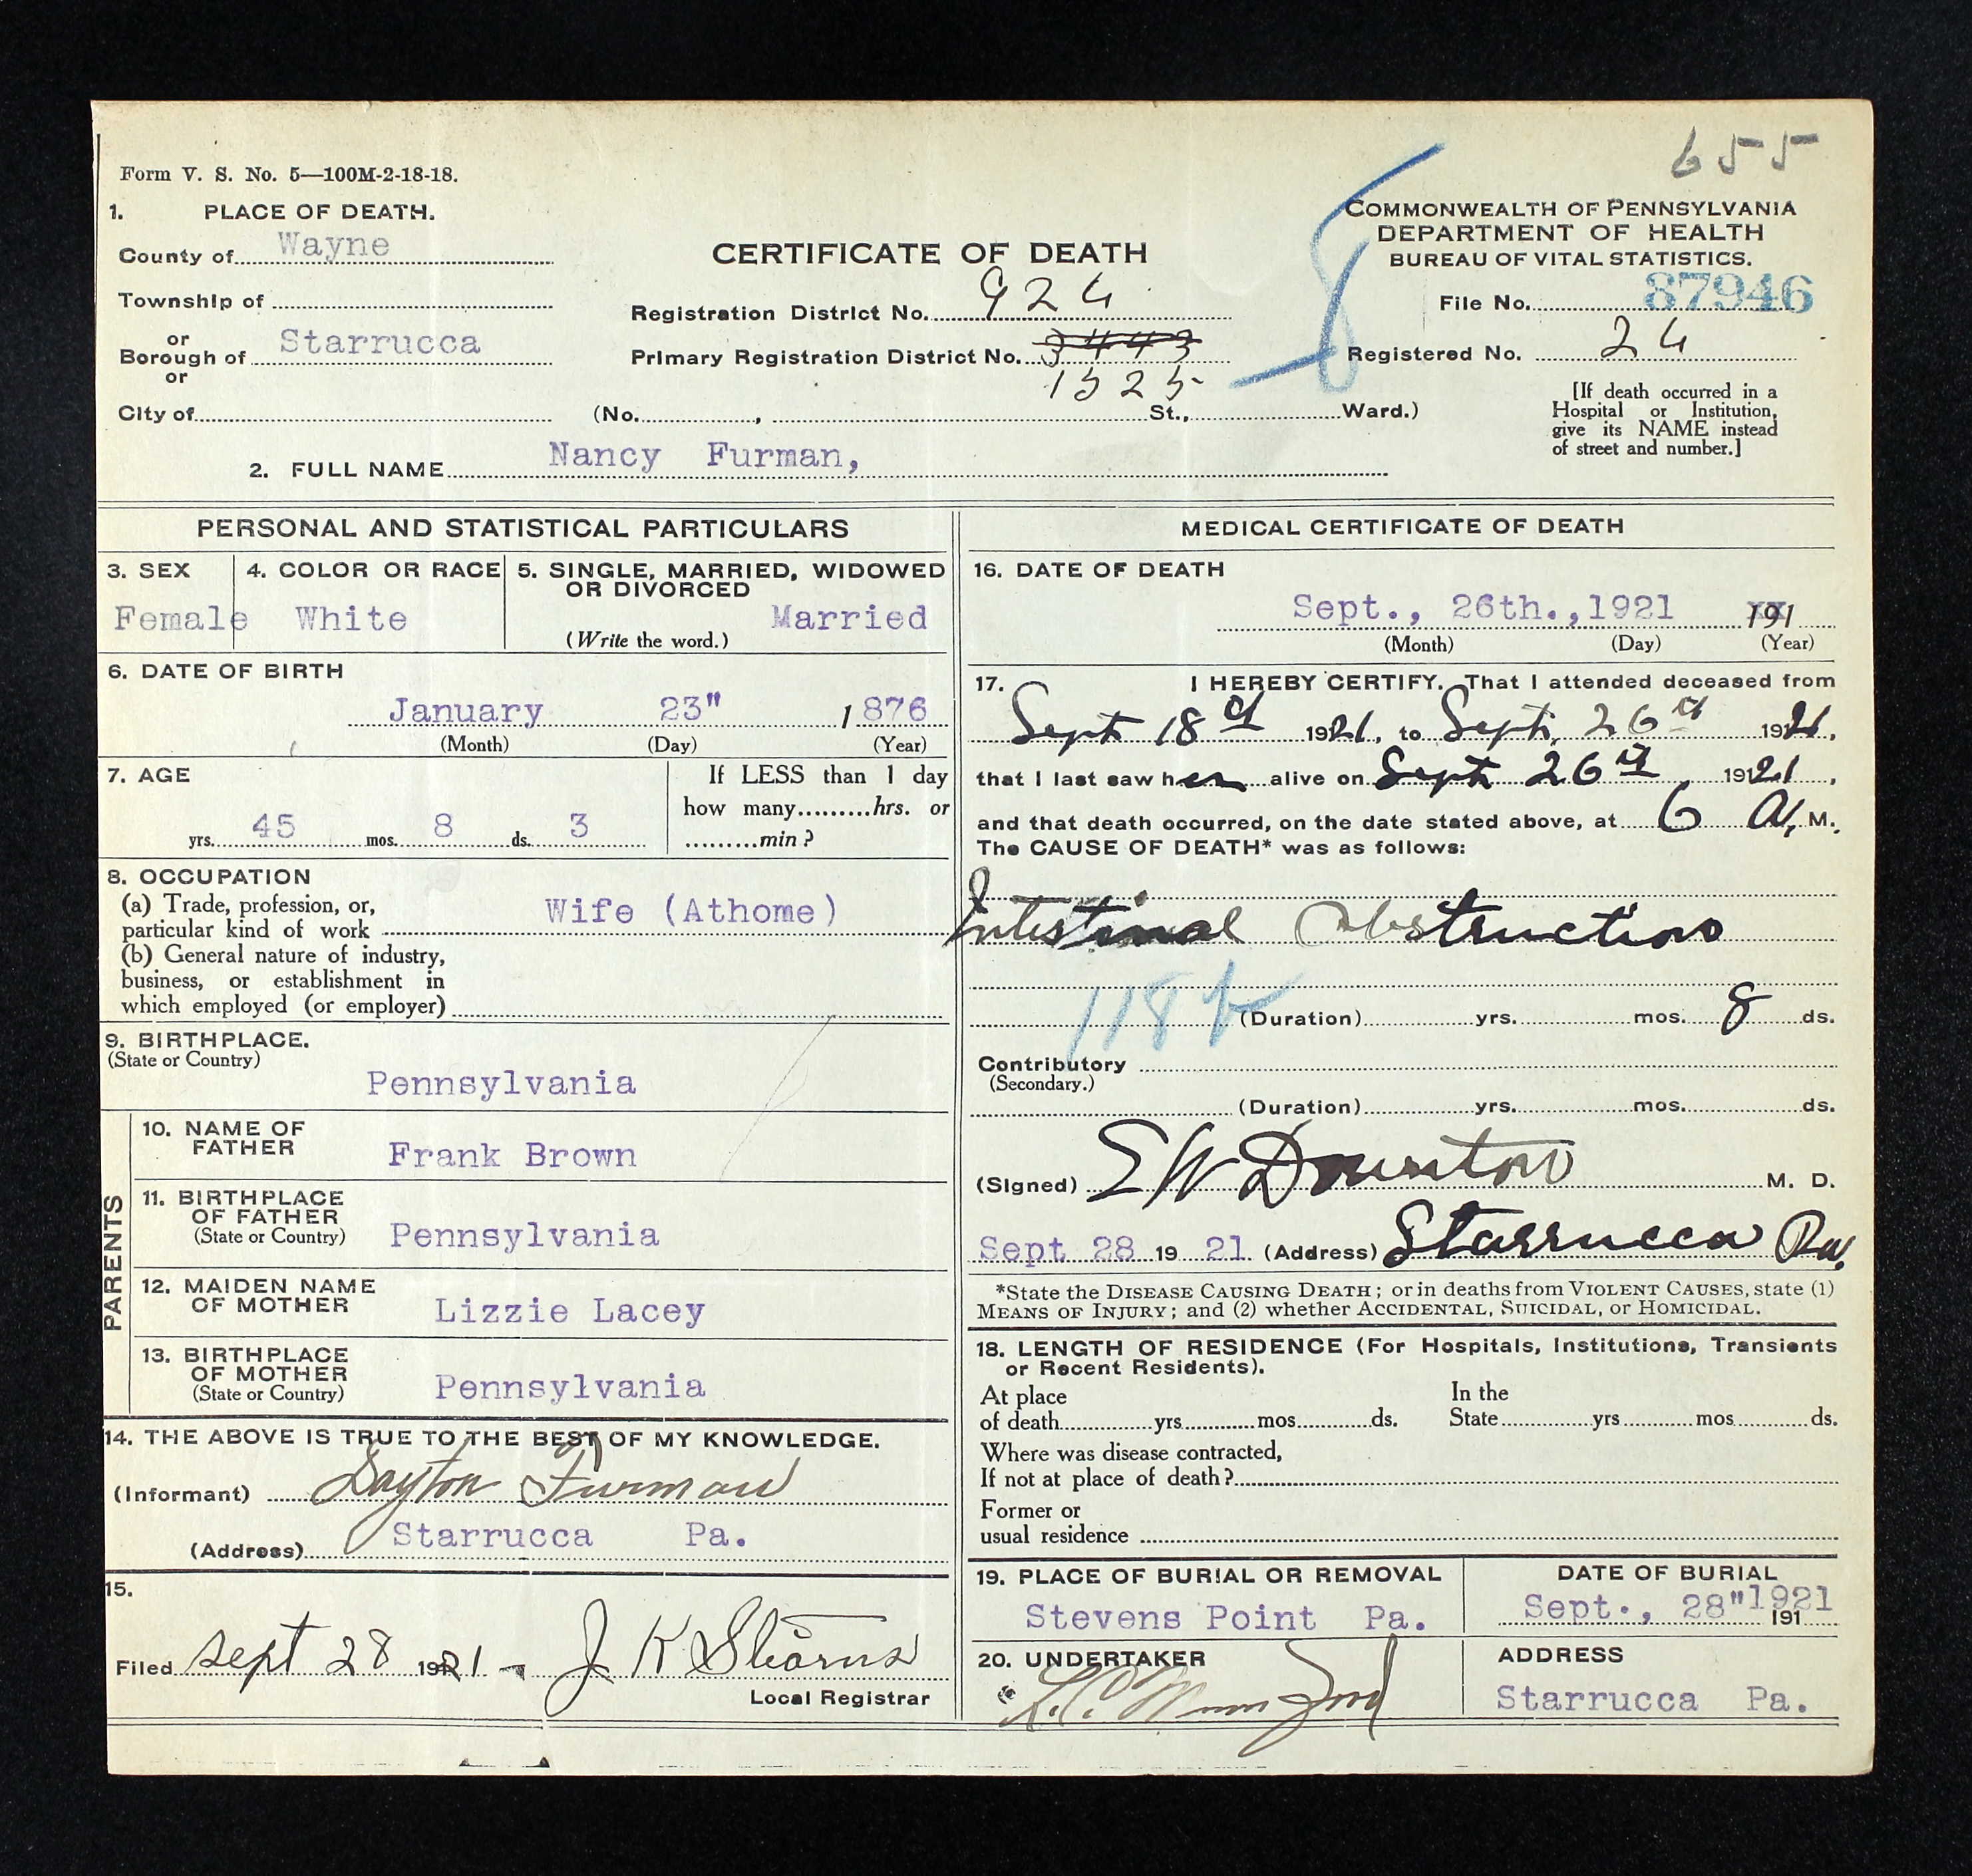 655
Form V. S. No. 5—100M-2-18-18.
1. PLACE OF DEATH.
County of Wayne
Township of
or
Borough of Starrucca
or
City of
CERTIFICATE OF DEATH
Registration District No. 924
Primary Registration District No. 3443
1525
(No. , St., Ward.)
COMMONWEALTH OF PENNSYLVANIA
DEPARTMENT OF HEALTH
BUREAU OF VITAL STATISTICS.
File No. 87946
Registered No. 24
[If death occurred in a
Hospital or Institution,
give its NAME instead
of street and number.]
2. FULL NAME Nancy Furman,
PERSONAL AND STATISTICAL PARTICULARS
3. SEX
Female
4. COLOR OR RACE
White
5. SINGLE, MARRIED, WIDOWED
OR DIVORCED
(Write the word.) Married
6. DATE OF BIRTH
January 23" 1876
(Month) (Day) (Year)
7. AGE
45 yrs. 8 mos. 3 ds.
If LESS than 1 day
how many hrs. or
min?
8. OCCUPATION
(a) Trade, profession, or,
particular kind of work Wife (Athome)
(b) General nature of industry,
business, or establishment in
which employed (or employer)
9. BIRTHPLACE.
(State or Country)
Pennsylvania
PARENTS
10. NAME OF
FATHER Frank Brown
11. BIRTHPLACE
OF FATHER
(State or Country) Pennsylvania
12. MAIDEN NAME
OF MOTHER Lizzie Lacey
13. BIRTHPLACE
OF MOTHER
(State or Country) Pennsylvania
14. THE ABOVE IS TRUE TO THE BEST OF MY KNOWLEDGE.
(Informant) Dayton Furman
(Address) Starrucca Pa.
15.
Filed Sept 28 1921 - J K Stearns
Local Registrar
MEDICAL CERTIFICATE OF DEATH
16. DATE OF DEATH
Sept., 26th.,1921 191
(Month) (Day) (Year)
17. I HEREBY CERTIFY. That I attended deceased from
Sept 18th 1921, to Sept, 26th 1921,
that I last saw her alive on Sept 26th, 1921,
and that death occurred, on the date stated above, at 6 A, M.
The CAUSE OF DEATH* was as follows:
Intestinal Obstruction
118
(Duration) yrs. mos. 8 ds.
Contributory
(Secondary.)
(Duration) yrs. mos. ds.
(Signed) E W Downton M. D.
Sept 28 19 21. (Address) Starrucca Pa.
*State the DISEASE CAUSING DEATH; or in deaths from VIOLENT CAUSES, state (1)
MEANS OF INJURY; and (2) whether ACCIDENTAL, SUICIDAL, or HOMICIDAL.
18. LENGTH OF RESIDENCE (For Hospitals, Institutions, Transients
or Recent Residents).
At place
of death yrs. mos. ds.
In the
State yrs. mos. ds.
Where was disease contracted,
If not at place of death?
Former or
usual residence
19. PLACE OF BURIAL OR REMOVAL
Stevens Point Pa.
DATE OF BURIAL
Sept., 28"1921
191
20. UNDERTAKER
ADDRESS
Starrucca Pa.